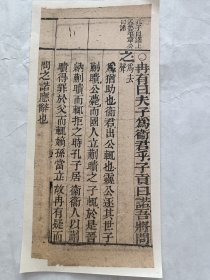 ○冉有曰夫子爲衛君乎子貢曰諾吾將問
之爲去聲
爲猶助也衛君出公輒也靈公逐其世子
蒯聵公薨而國人立蒯聵之子輒於是晉
納蒯聵而輒拒之時孔子居衛衛人以蒯
聵得罪於父而輒嫡孫當立故冉有疑而
問之諾應辭也